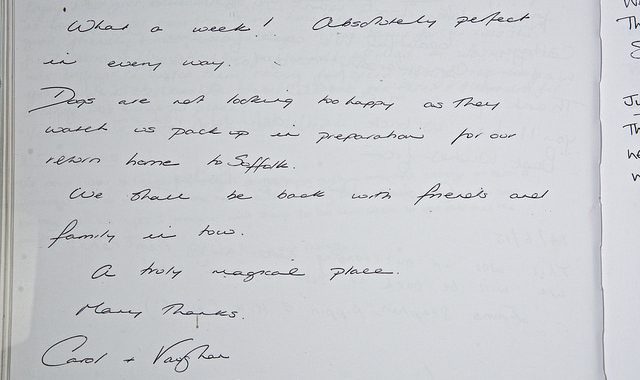 What a week! Absolutely perfect
in every way.
Dogs are not looking too happy as they
watch us pack up in preparation for our
return home to Suffolk.
We shall be back with friends and
family in tow.
A truly magical place.
Many Thanks.
Carol + Vaughan